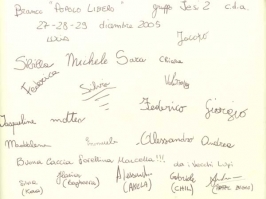 Branco "POPOLO LIBERO" gruppo Jesi 2 c.d.a.
27-28-29 dicembre 2005
Jacopo
Sibilla Michele Sara Chiara
Francesca Silvia
Federico Giorgio
Jaqueline matteo
Maddalena Alessandro Andrea
Buona Caccia Sorellina Marcella!!! dai Vecchi Lupi
Silvia (Kaa) Gloria (Bagheera) Alessandro (AKELA) Gabriele (CHIL)